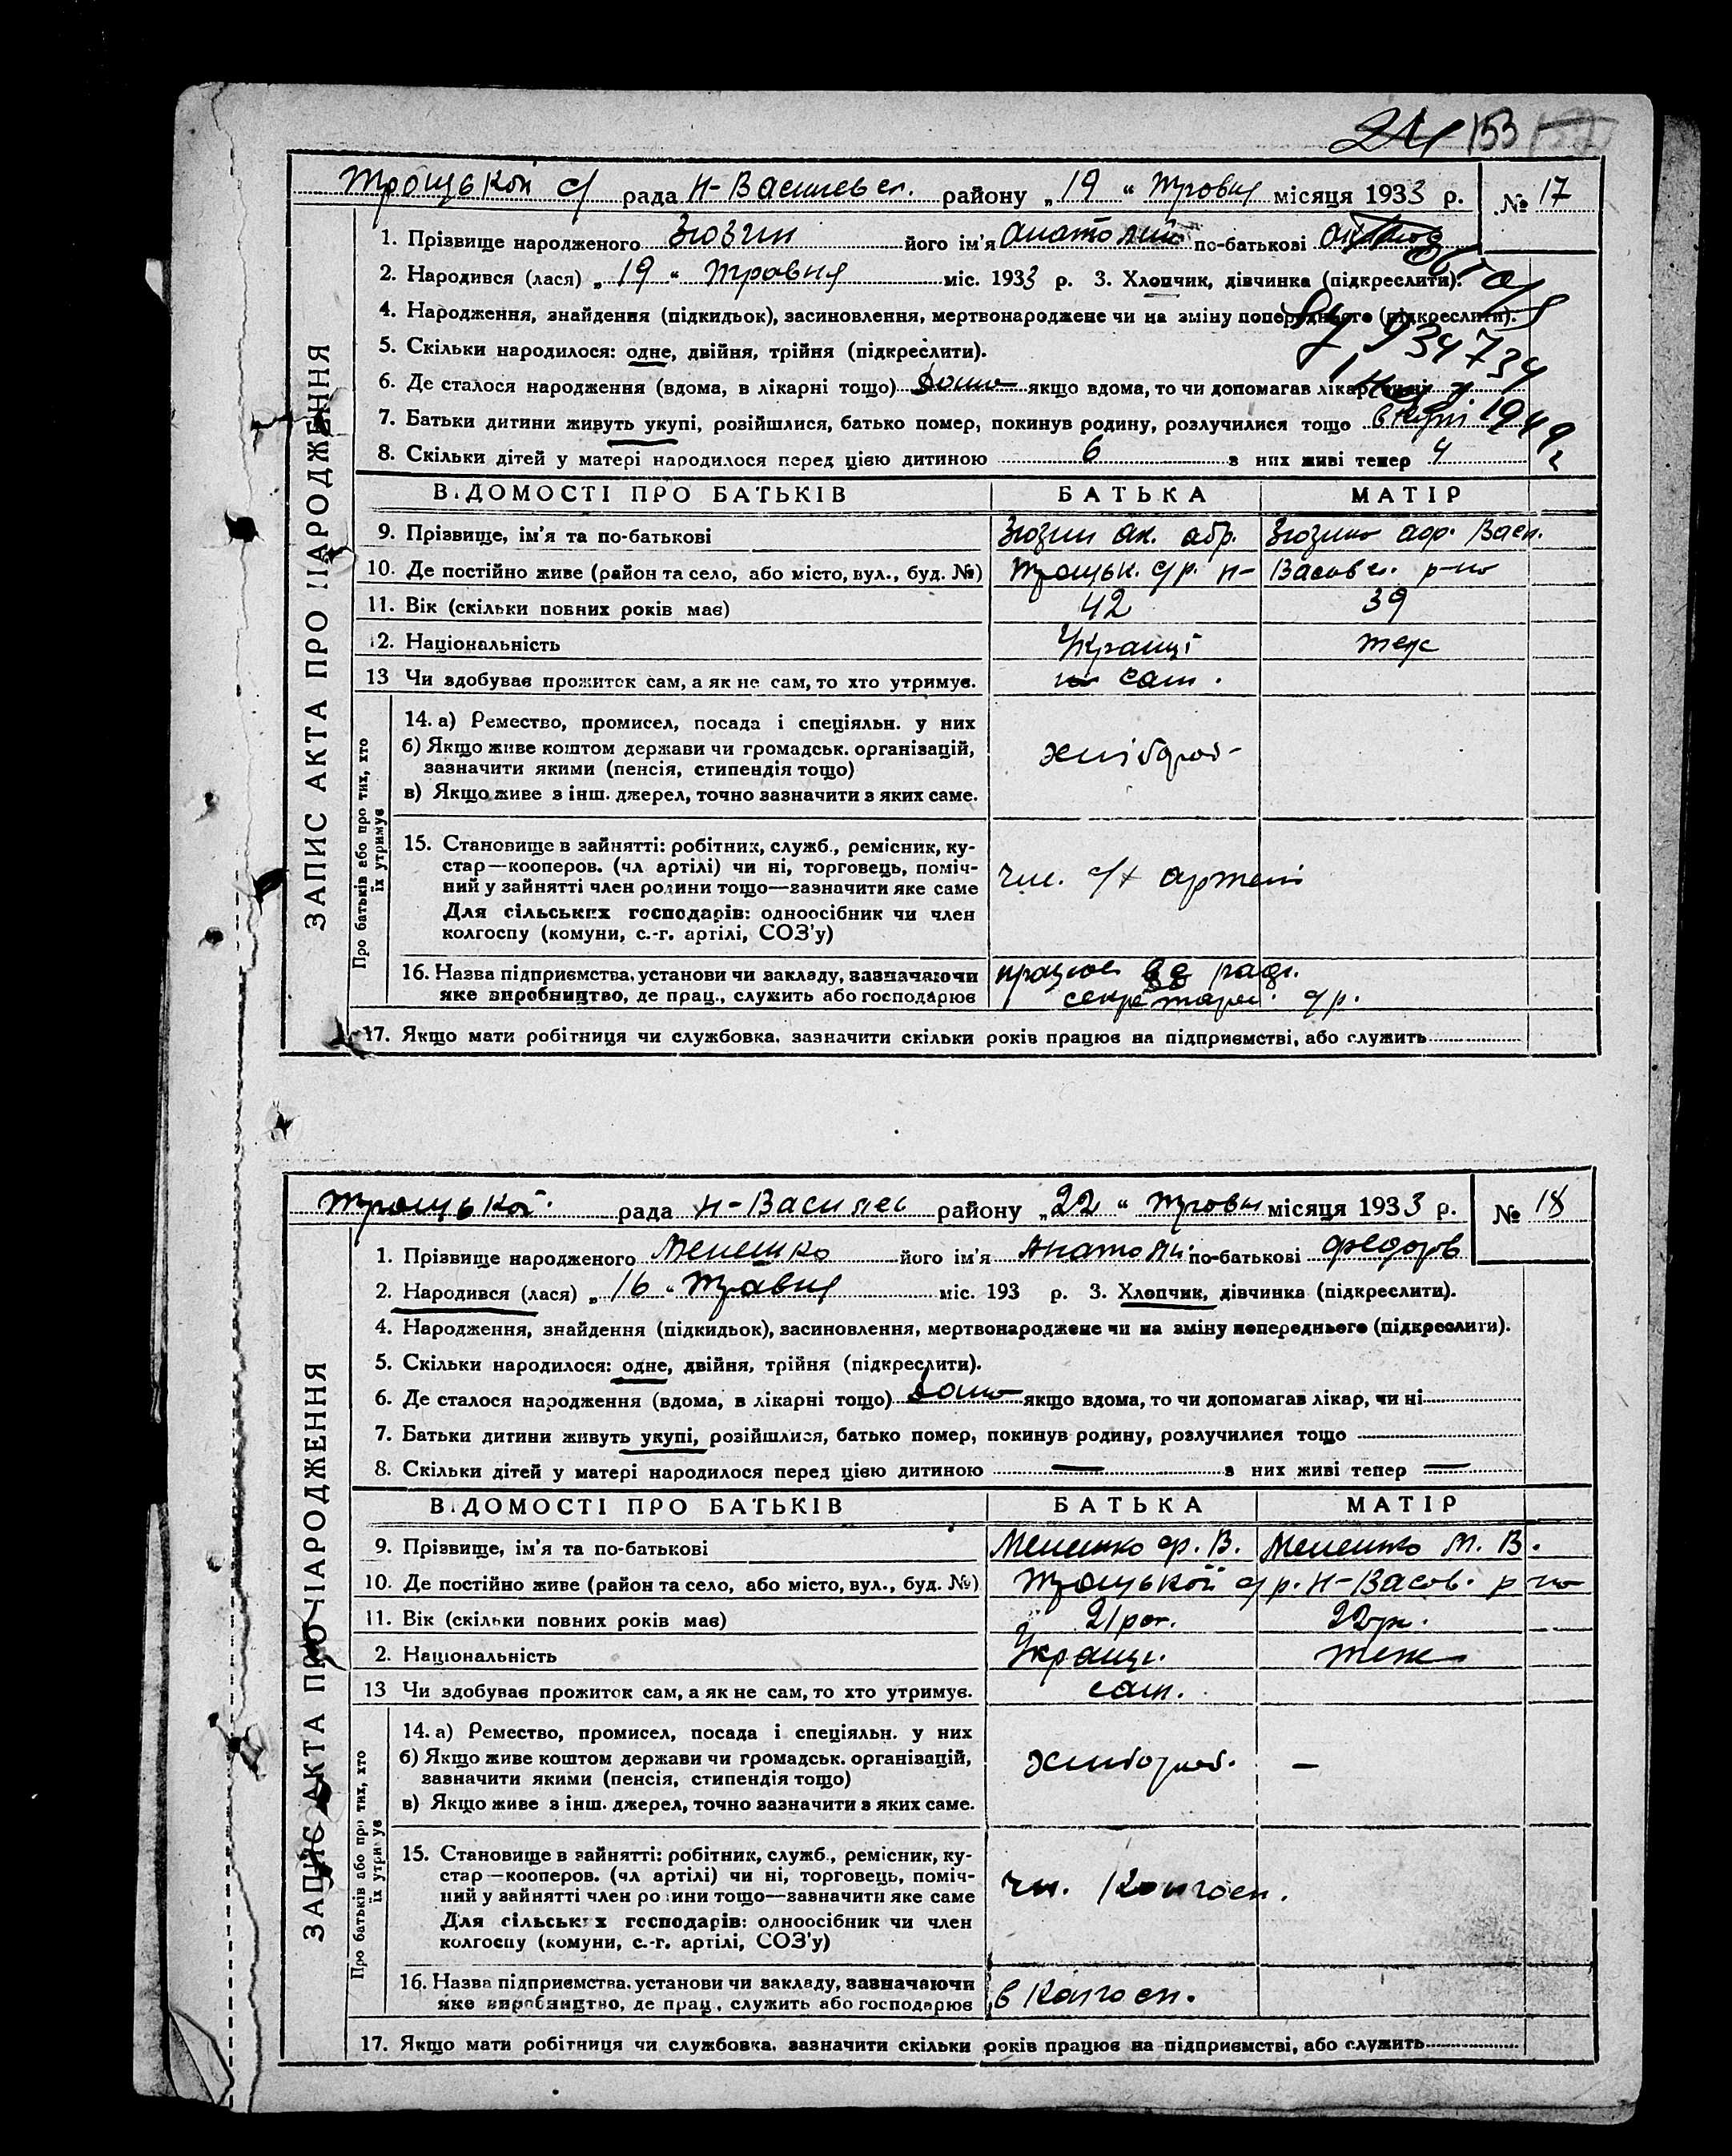 24 153
Троцькой с/ рада Н-Василевсл. району „19“ Травня місяця 1933 р. № 17
1. Прізвище народженого Зюзин його ім'я Анатолий по-батькові
2. Народився (лася) „19“ Травня міс. 1933 р. 3. Хлопчик, дівчинка (підкреслити).
4. Народження, знайдення (підкидьок), засиновлення, мертвонароджене чи на зміну попереднього (підкреслити).
5. Скільки народилося: одне, двійня, трійня (підкреслити).
934734
6. Де сталося народження (вдома, в лікарні тощо) дома якщо вдома, то чи допомагав лікар, чи ні
7. Батьки дитини живуть укупі, розійшлися, батько помер, покинув родину, розлучилися тощо 1949
8. Скільки дітей у матері народилося перед цією дитиною 6 з них живі тепер 4
ЗАПИС АКТА ПРО НАРОДЖЕННЯ
ВІДОМОСТІ ПРО БАТЬКІВ БАТЬКА МАТІР
9. Прізвище, ім'я та по-батькові Зюзин ак. абр. Зюзино аф. Васл.
10. Де постійно живе (район та село, або місто, вул., буд. №) Троцьк. с/р. Н- Васовсл. р-но
11. Вік (скільки повних років має) 42 39
12. Національність Украінці теж
13 Чи здобував прожиток сам, а як не сам, то хто утримує. сам.
Про батьків або про тих, хто їх утримує
14. а) Ремество, промисел, посада і спеціяльн. у них
б) Якщо живе коштом держави чи громадськ. організацій, хлібороб-
зазначити якими (пенсія, стипендія тощо)
в) Якщо живе з інш. джерел, точно зазначити з яких саме.
15. Становище в зайнятті: робітник, служб., ремісник, ку-
стар—кооперов. (чл артілі) чи ні, торговець, поміч-
ний у зайнятті член родини тощо—зазначити яке саме чл. с/х артелі
Для сільських господарів: одноосібник чи член
колгоспу (комуни, с.-г. артілі, СОЗ'у)
16. Назва підприємства, установи чи закладу, зазначаючи працює раді.
яке виробництво, де прац., служить або господарює секретарем. с/р.
17. Якщо мати робітниця чи службовка, зазначити скільки років працює на підприємстві, або служить
Троцькой. рада Н-Василев району „22“ Травн місяця 1933 р. № 18
1. Прізвище народженого Мелешко його ім'я Анатолий по-батькові Федоров
2. Народився (лася) „16“ Травня міс. 193 р. 3. Хлопчик, дівчинка (підкреслити).
4. Народження, знайдення (підкидьок), засиновлення, мертвонароджене чи на зміну попереднього (підкреслити).
5. Скільки народилося: одне, двійня, трійня (підкреслити).
6. Де сталося народження (вдома, в лікарні тощо) дома якщо вдома, то чи допомагав лікар, чи ні
7. Батьки дитини живуть укупі, розійшлися, батько помер, покинув родину, розлучилися тощо
8. Скільки дітей у матері народилося перед цією дитиною — з них живі тепер —
ЗАПИС АКТА ПРО НАРОДЖЕННЯ
ВІДОМОСТІ ПРО БАТЬКІВ БАТЬКА МАТІР
9. Прізвище, ім'я та по-батькові Мелешко ф. В. Мелешко М. В.
10. Де постійно живе (район та село, або місто, вул., буд. №) Троцькой с/р. Н-Васов. р-но
11. Вік (скільки повних років має) 21 рог. 22 рж.
2. Національність Украінц. теж
13 Чи здобував прожиток сам, а як не сам, то хто утримує. сам.
Про батьків або про тих, хто їх утримує
14. а) Ремество, промисел, посада і спеціяльн. у них
б) Якщо живе коштом держави чи громадськ. організацій, хлібороб. —
зазначити якими (пенсія, стипендія тощо)
в) Якщо живе з інш. джерел, точно зазначити з яких саме.
15. Становище в зайнятті: робітник, служб., ремісник, ку-
стар—кооперов. (чл артілі) чи ні, торговець, поміч-
ний у зайнятті член родини тощо—зазначити яке саме чл. Колгосп.
Для сільських господарів: одноосібник чи член
колгоспу (комуни, с.-г. артілі, СОЗ'у)
16. Назва підприємства, установи чи закладу, зазначаючи в Колгосп.
яке виробництво, де прац., служить або господарює
17. Якщо мати робітниця чи службовка, зазначити скільки років працює на підприємстві, або служить